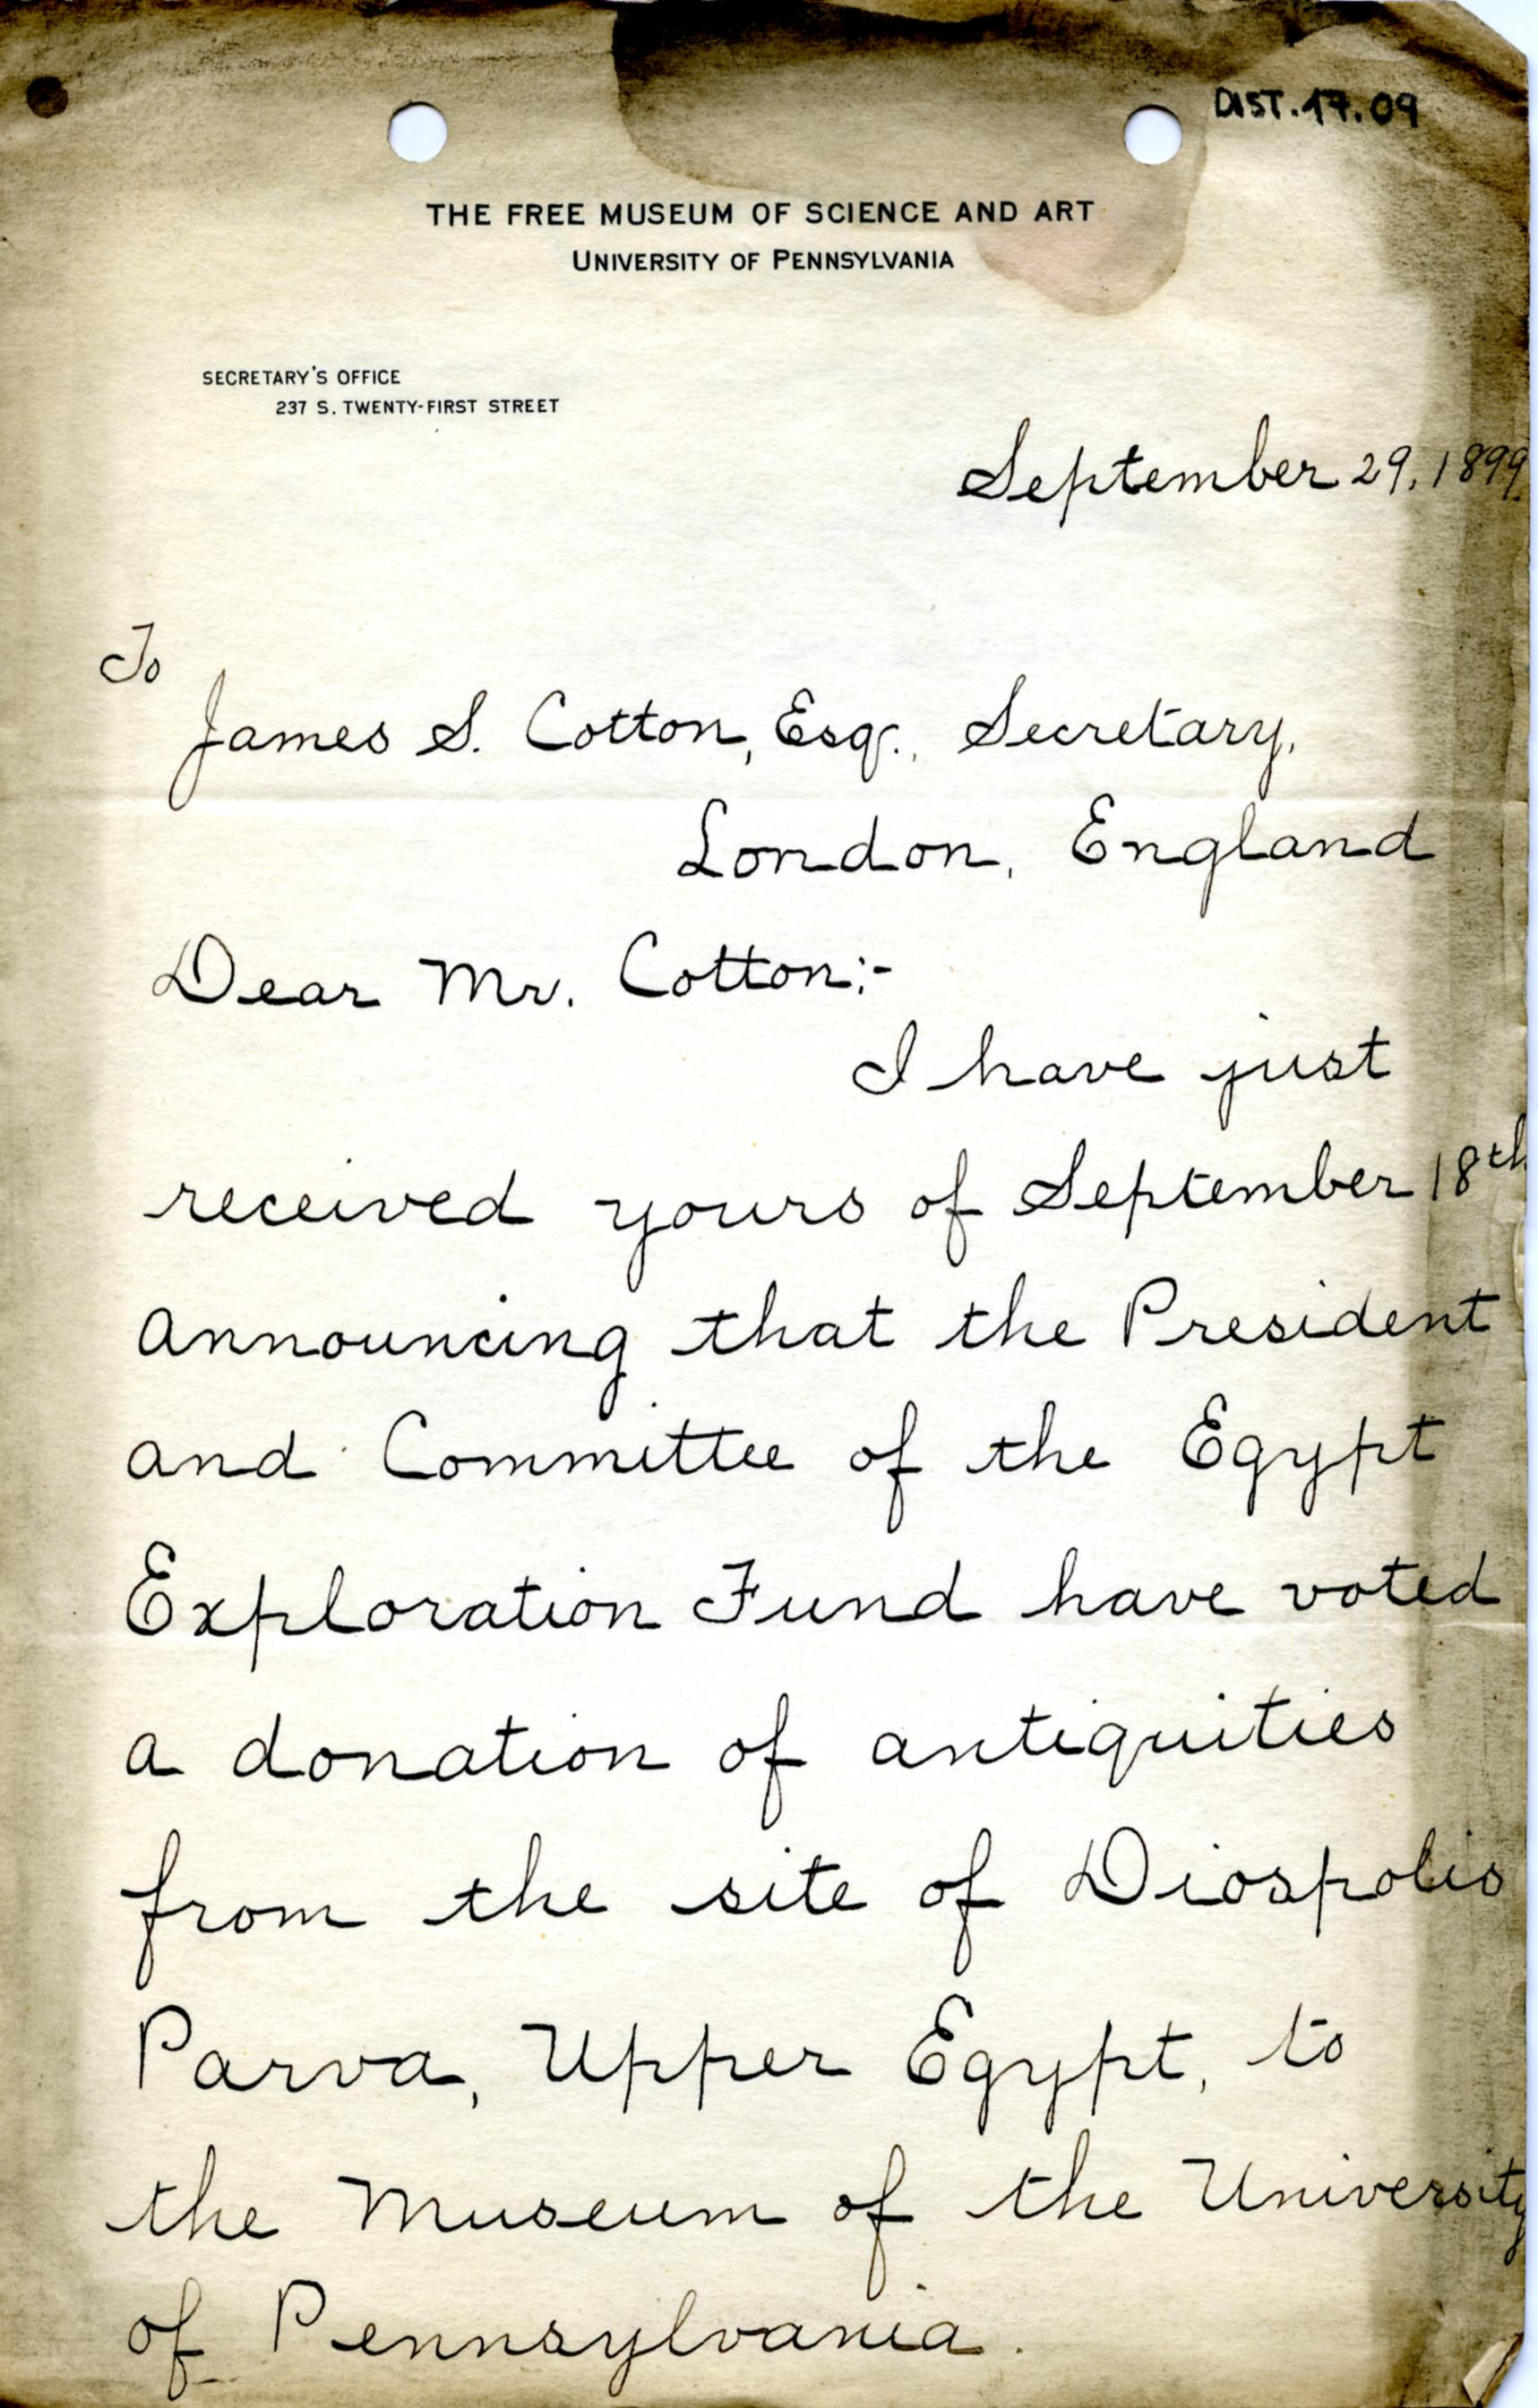 DIST.17.09
THE FREE MUSEUM OF SCIENCE AND ART
UNIVERSITY OF PENNSYLVANIA
SECRETARY'S OFFICE
237 S. TWENTY-FIRST STREET
September 29, 1899.
To
James S. Cotton, Esq., Secretary,
London, England
Dear Mr. Cotton:-
I have just
received yours of September 18th
announcing that the President
and Committee of the Egypt
Exploration Fund have voted
a donation of antiquities
from the site of Diospolis
Parva, Upper Egypt, to
the Museum of the University
of Pennsylvania.